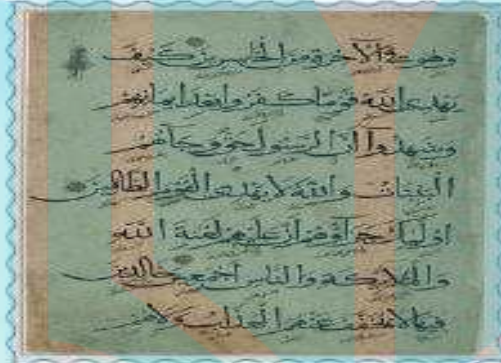 وهو في الآخرة من الخاسرين كيف
يهدي الله قوما كفروا بعد ايمانهم
وشهدوا أن الرسول حق وجاءهم
البينات والله لا يهدي القوم الظالمين
اولئك جزاؤهم أن عليهم لعنة الله
والملائكة والناس اجمعين خالدين
فيها لا يخفف عنهم العذاب ولا هم